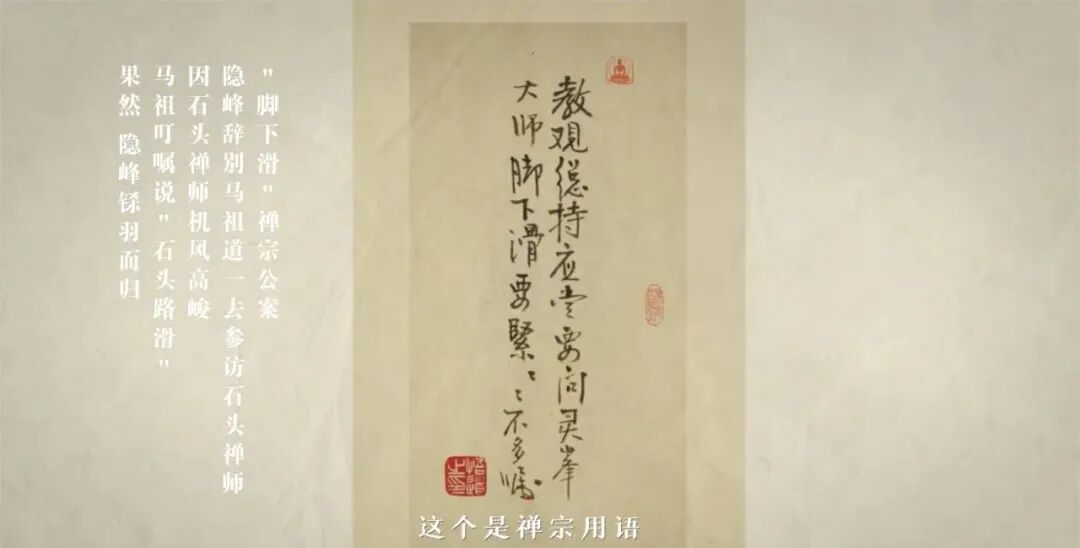 教观緫持应当要问灵峯
大师脚下滑要緊〻〻不多嘱
悟道之印
"脚下滑"禅宗公案
隐峰辞别马祖道一去参访石头禅师
因石头禅师机风高峻
马祖叮嘱说"石头路滑"
果然 隐峰铩羽而归
这个是禅宗用语